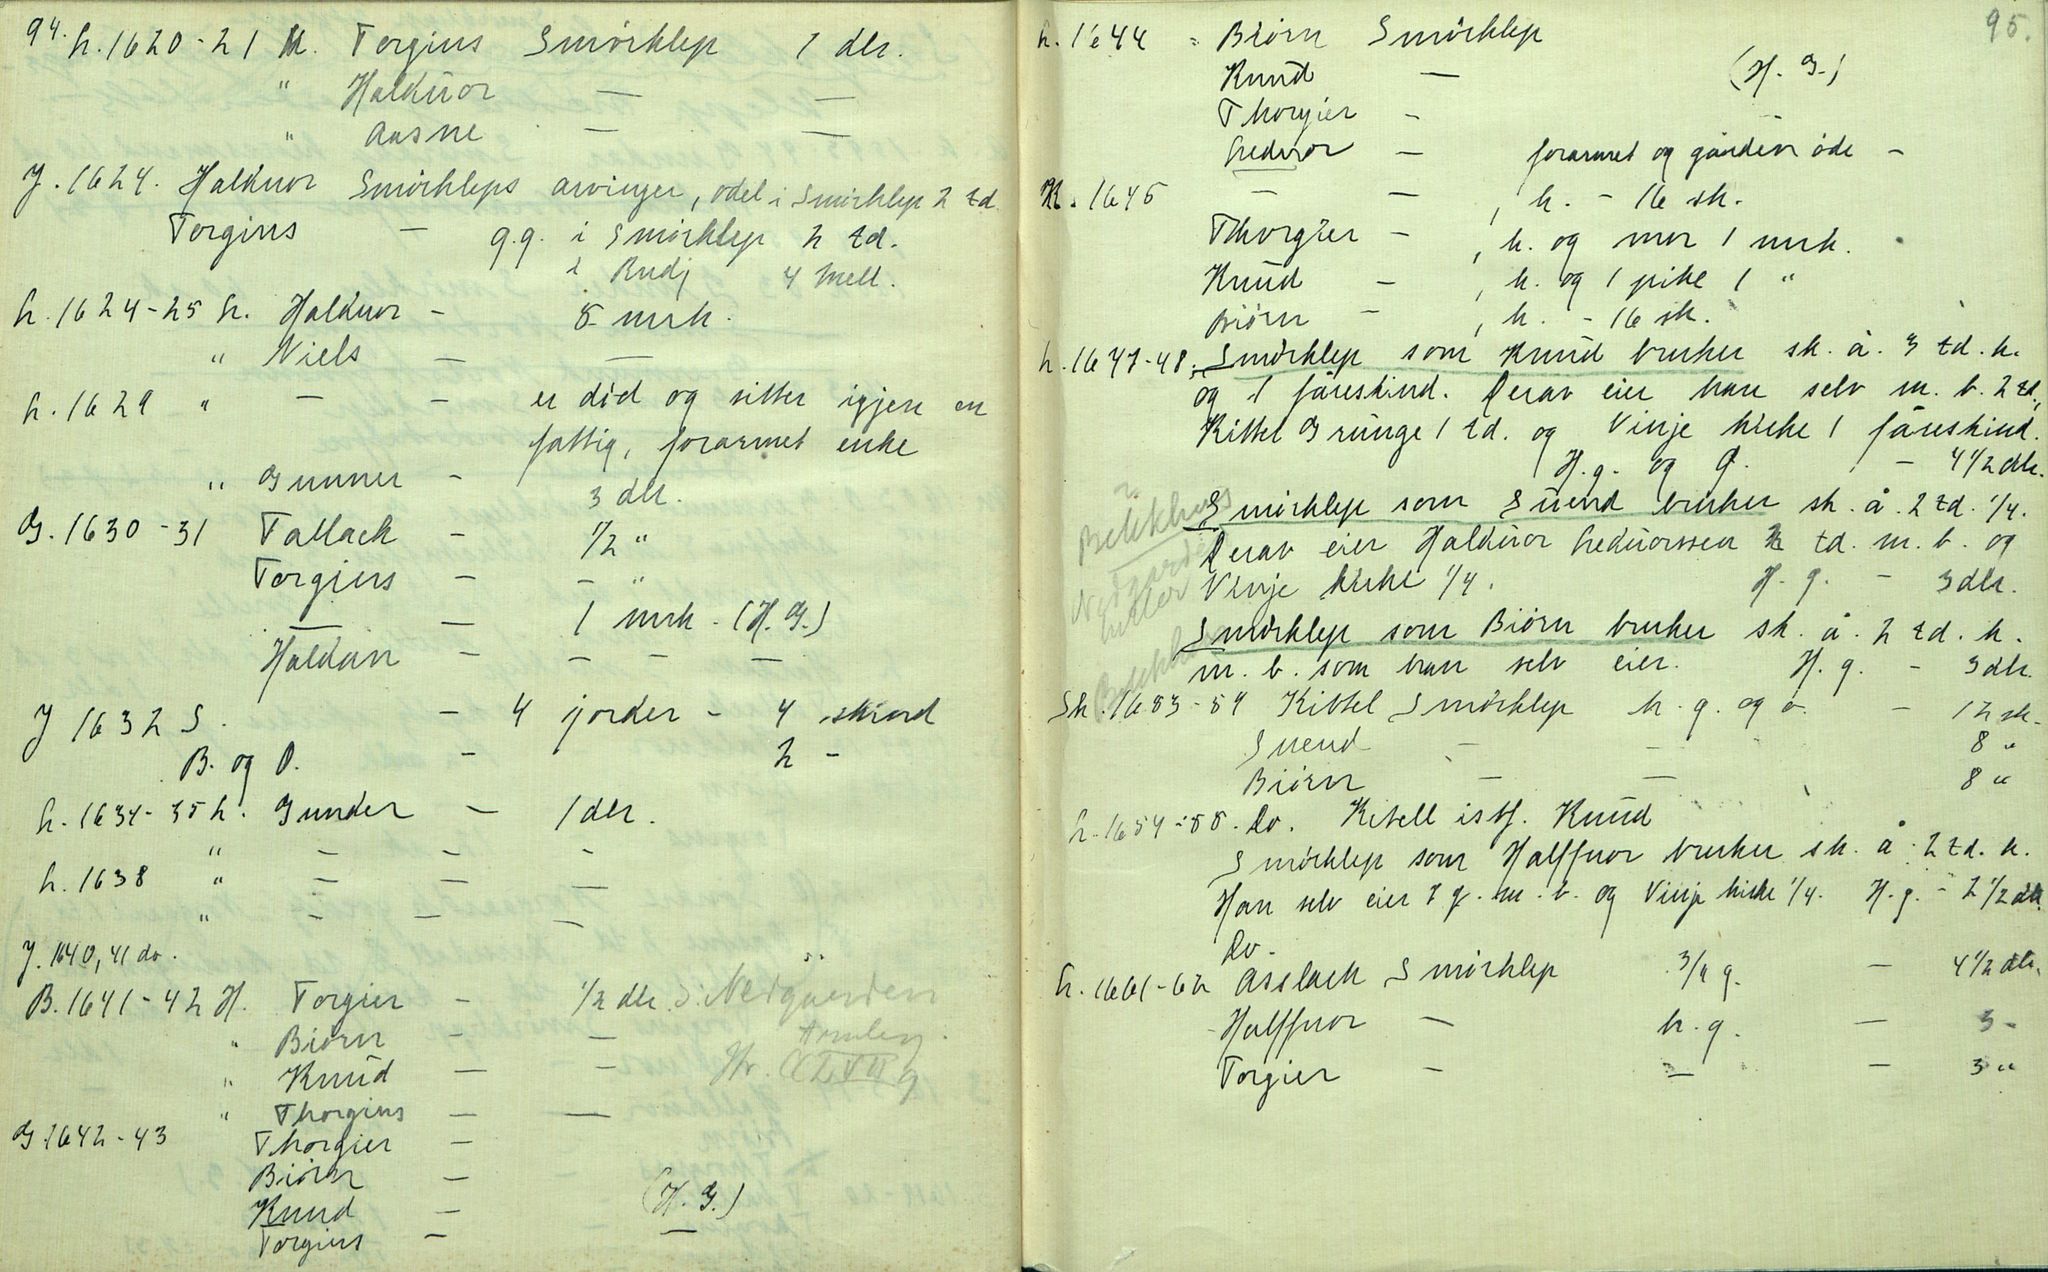 94.
h. 1620-21 H. Torgius Smörklep 1 dlr.
" Halduor — —
" Aasne — —
J. 1624. Halduor Smörkleps arvinger, odel i Smörklep 2 td.
Torgius — g.g. i Smörklep 2 td.
i Rudj 4 mell.
h. 1624-25 h. Halduor - 8 mrk.
" Niels — —
h. 1629 " — - er död og sitter igjen en
fattig, forarmet enke
" Gunner - 3 dlr.
G. 1630-31 Tallack - 1/2 "
Torgius - - "
— — 1 mrk. (H. G.)
Haldan - - - -
J 1632 S. - 4 jorder - 4 skind
B. og O. - 2 -
h. 1634-35 h. Gunder - 1 dlr.
" - - -
h. 1638 " - - -
" - - -
J. 1640, 41 do.
B. 1641-42 H. Torgier - 1/2 dlr. S. Nedgaarden
" Biörn - -
" Knud - -
" Thorgius - —
G. 1642-43 Thorgier -
Biörn -
Knud - (H. G.)
Torgius - —
95.
h. 1644 = Biörn Smörklep
Knud — (H. G.)
Thorgier -
Leduor - forarmet og gården öde -
K. 1645 - - , h. - 16 sk.
Thorgier - , h. og mor 1 mrk.
Knud - , h. og 1 pike 1 "
Biörn - , h. - 16 sk.
h. 1647-48. Smörklep som Knud bruker sk. å. 3 td. k.
og 1 fåreskind. Derav eier han selv m. b. 2 td.,
Kittel Grunge 1 td. og Vinje kirke 1 fåreskind.
H. g. og O. - 4 1/2 dlr.
Smörklep som Suend bruker sk. å 2 td. 1/4.
Derav eier Halduor Leduorssen 2 td. m. b. og
Vinje kirke 1/4. H. g. - 3 dlr.
Smörklep som Biörn bruker sk. å. 2 td. k.
m. b. som han selv eier. H. g. - 3 dlr.
Sk. 1653-54 Kittel Smörklep h. g. og o. - 12 sk.
Suend - - 8 "
Biörn - - 8 "
h. 1654-55. Do. Ketell istf. Knud
Smörklep som Halffuor bruker sk. å. 2 td. k.
Han selv eier 7 q. m. b. og Vinje kirke 1/4. H. g. - 2 1/2 dlr.
Do.
h. 1661-62 Asslack Smörklep 3/4 g. - 4 1/2 dlr.
Halffuor - h. g. - 3 -
Torgier - - - 3 "